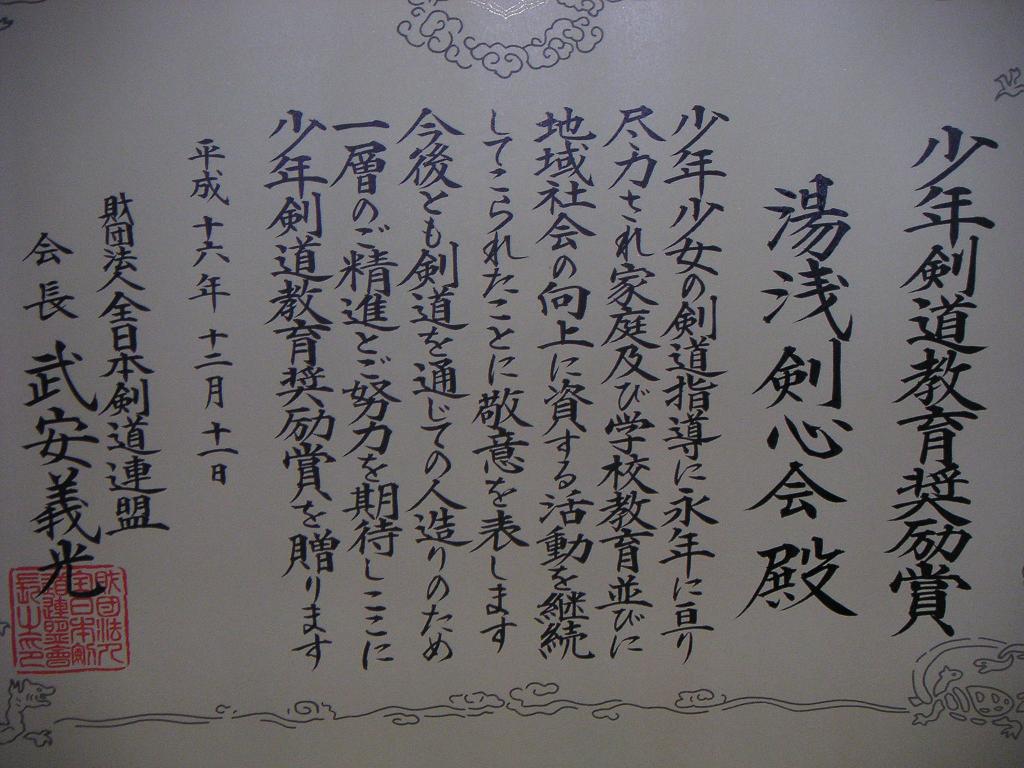 少年剣道教育奨励賞
湯浅剣心会殿
少年少女の剣道指導に永年に亘り
尽力され家庭及び学校教育並びに
地域社会の向上に資する活動を継続
してこられたことに敬意を表します
今後とも剣道を通じての人造りのため
一層のご精進とご努力を期待しここに
少年剣道教育奨励賞を贈ります
平成十六年十二月十一日
財団法人全日本剣道連盟
会長武安義光
財団法人
全日本剣
道連盟会
長之印